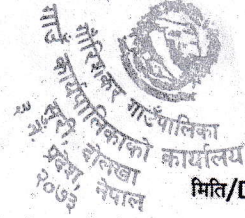 गौरीशंकर गाउँपालिका
गाउँ कार्यपालिकाको कार्यालय
सुरी, दोलखा
प्रदेश, नेपाल
२०७३
मिति/D